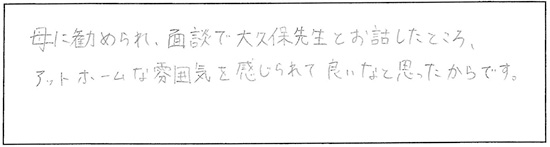 母に勧められ、面談で大久保先生とお話したところ、
アットホームな雰囲気を感じられて良いなと思ったからです。